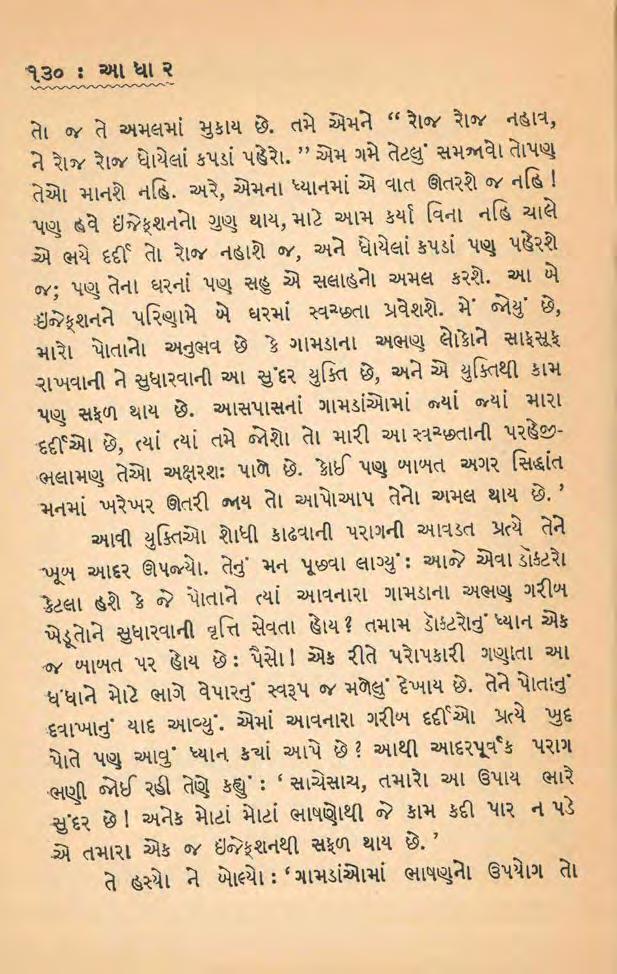 ૧૩૦ : આ ધા ર
તો જ તે અમલમાં મુકાય છે. તમે એમને “ રોજ રોજ નહાવ,
ને રોજ રોજ ધોયેલાં કપડાં પહેરો. ” એમ ગમે તેટલું સમજાવો તોપણ
તેઓ માનશે નહિ. અરે, એમના ધ્યાનમાં એ વાત ઊતરશે જ નહિ !
પણ હવે ઇંજેક્શનનો ગુણ થાય, માટે આમ કર્યા વિના નહિ ચાલે
એ ભયે દર્દી તો રોજ નહાશે જ, અને ધોયેલાં કપડાં પણ પહેરશે
જ; પણ તેના ઘરનાં પણ સહુ એ સલાહનો અમલ કરશે. આ બે
ઇંજેક્શનને પરિણામે બે ઘરમાં સ્વચ્છતા પ્રવેશશે. મેં જોયું છે,
મારો પોતાનો અનુભવ છે કે ગામડાના અભણ લોકોને સાફસૂફ
રાખવાની ને સુધારવાની આ સુંદર યુક્તિ છે, અને એ યુક્તિથી કામ
પણ સફળ થાય છે. આસપાસનાં ગામડાંઓમાં જ્યાં જ્યાં મારા
દર્દીઓ છે, ત્યાં ત્યાં તમે જોશો તો મારી આ સ્વચ્છતાની પરહેજી-
ભલામણ તેઓ અક્ષરશઃ પાળે છે. કોઈ પણ બાબત અગર સિદ્ધાંત
મનમાં ખરેખર ઊતરી જાય તો આપોઆપ તેનો અમલ થાય છે. ’
આવી યુક્તિઓ શોધી કાઢવાની પરાગની આવડત પ્રત્યે તેને
ખૂબ આદર ઊપજ્યો. તેનું મન પૂછવા લાગ્યું : આજે એવા ડૉક્ટરો
કેટલા હશે કે જે પોતાને ત્યાં આવનારા ગામડાના અભણ ગરીબ
ખેડૂતોને સુધારવાની વૃત્તિ સેવતા હોય ? તમામ ડૉક્ટરોનું ધ્યાન એક
જ બાબત પર હોય છે : પૈસો ! એક રીતે પરોપકારી ગણાતા આ
ધંધાને મોટે ભાગે વેપારનું સ્વરૂપ જ મળેલું દેખાય છે. તેને પોતાનું
દવાખાનું યાદ આવ્યું. એમાં આવનારા ગરીબ દર્દીઓ પ્રત્યે ખુદ
પોતે પણ આવું ધ્યાન ક્યાં આપે છે ? આથી આદરપૂર્વક પરાગ
ભણી જોઈ રહી તેણે કહ્યું : ‘ સાચેસાચ, તમારો આ ઉપાય ભારે
સુંદર છે ! અનેક મોટાં મોટાં ભાષણોથી જે કામ કદી પાર ન પડે
એ તમારા એક જ ઇંજેક્શનથી સફળ થાય છે. ’
તે હસ્યો ને બોલ્યો : ‘ ગામડાંઓમાં ભાષણનો ઉપયોગ તો